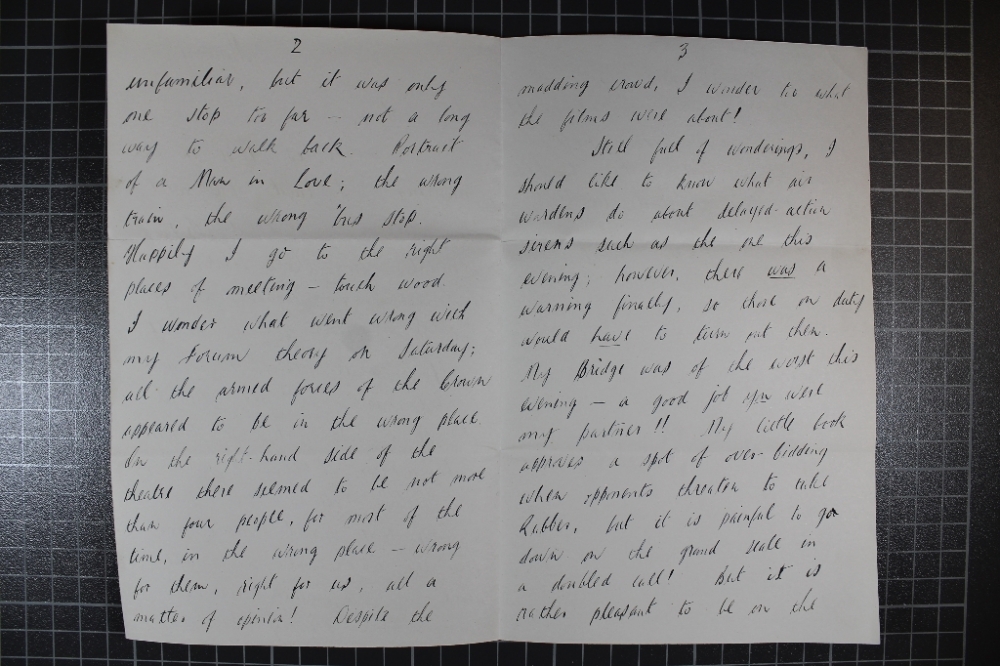 2
unfamiliar, but it was only
one stop too far – not a long
way to walk back. Portrait
of a Man in Love; the wrong
train, the wrong 'bus stop.
Happily I go to the right
places of meeting – touch wood.
I wonder what went wrong with
my Forum theory on Saturday;
all the armed forces of the Crown
appeared to be in the wrong place.
On the right-hand side of the
theatre there seemed to be not more
than four people, for most of the
time, in the wrong place – wrong
for them, right for us, all a
matter of opinion! Despite the
3
madding crowd, I wonder too what
the films were about!
Still full of wonderings, I
should like to know what air
wardens do about delayed-action
sirens such as the one this
evening; however, there was a
warning finally, so those on duty
would have to turn out then.
My Bridge was of the worst this
evening – a good job you were
my partner!! My little book
approves a spot of over-bidding
when opponents threaten to take
Rubber, but it is painful to go
down on the grand scale in
a doubled call! But it is
rather pleasant to be on the